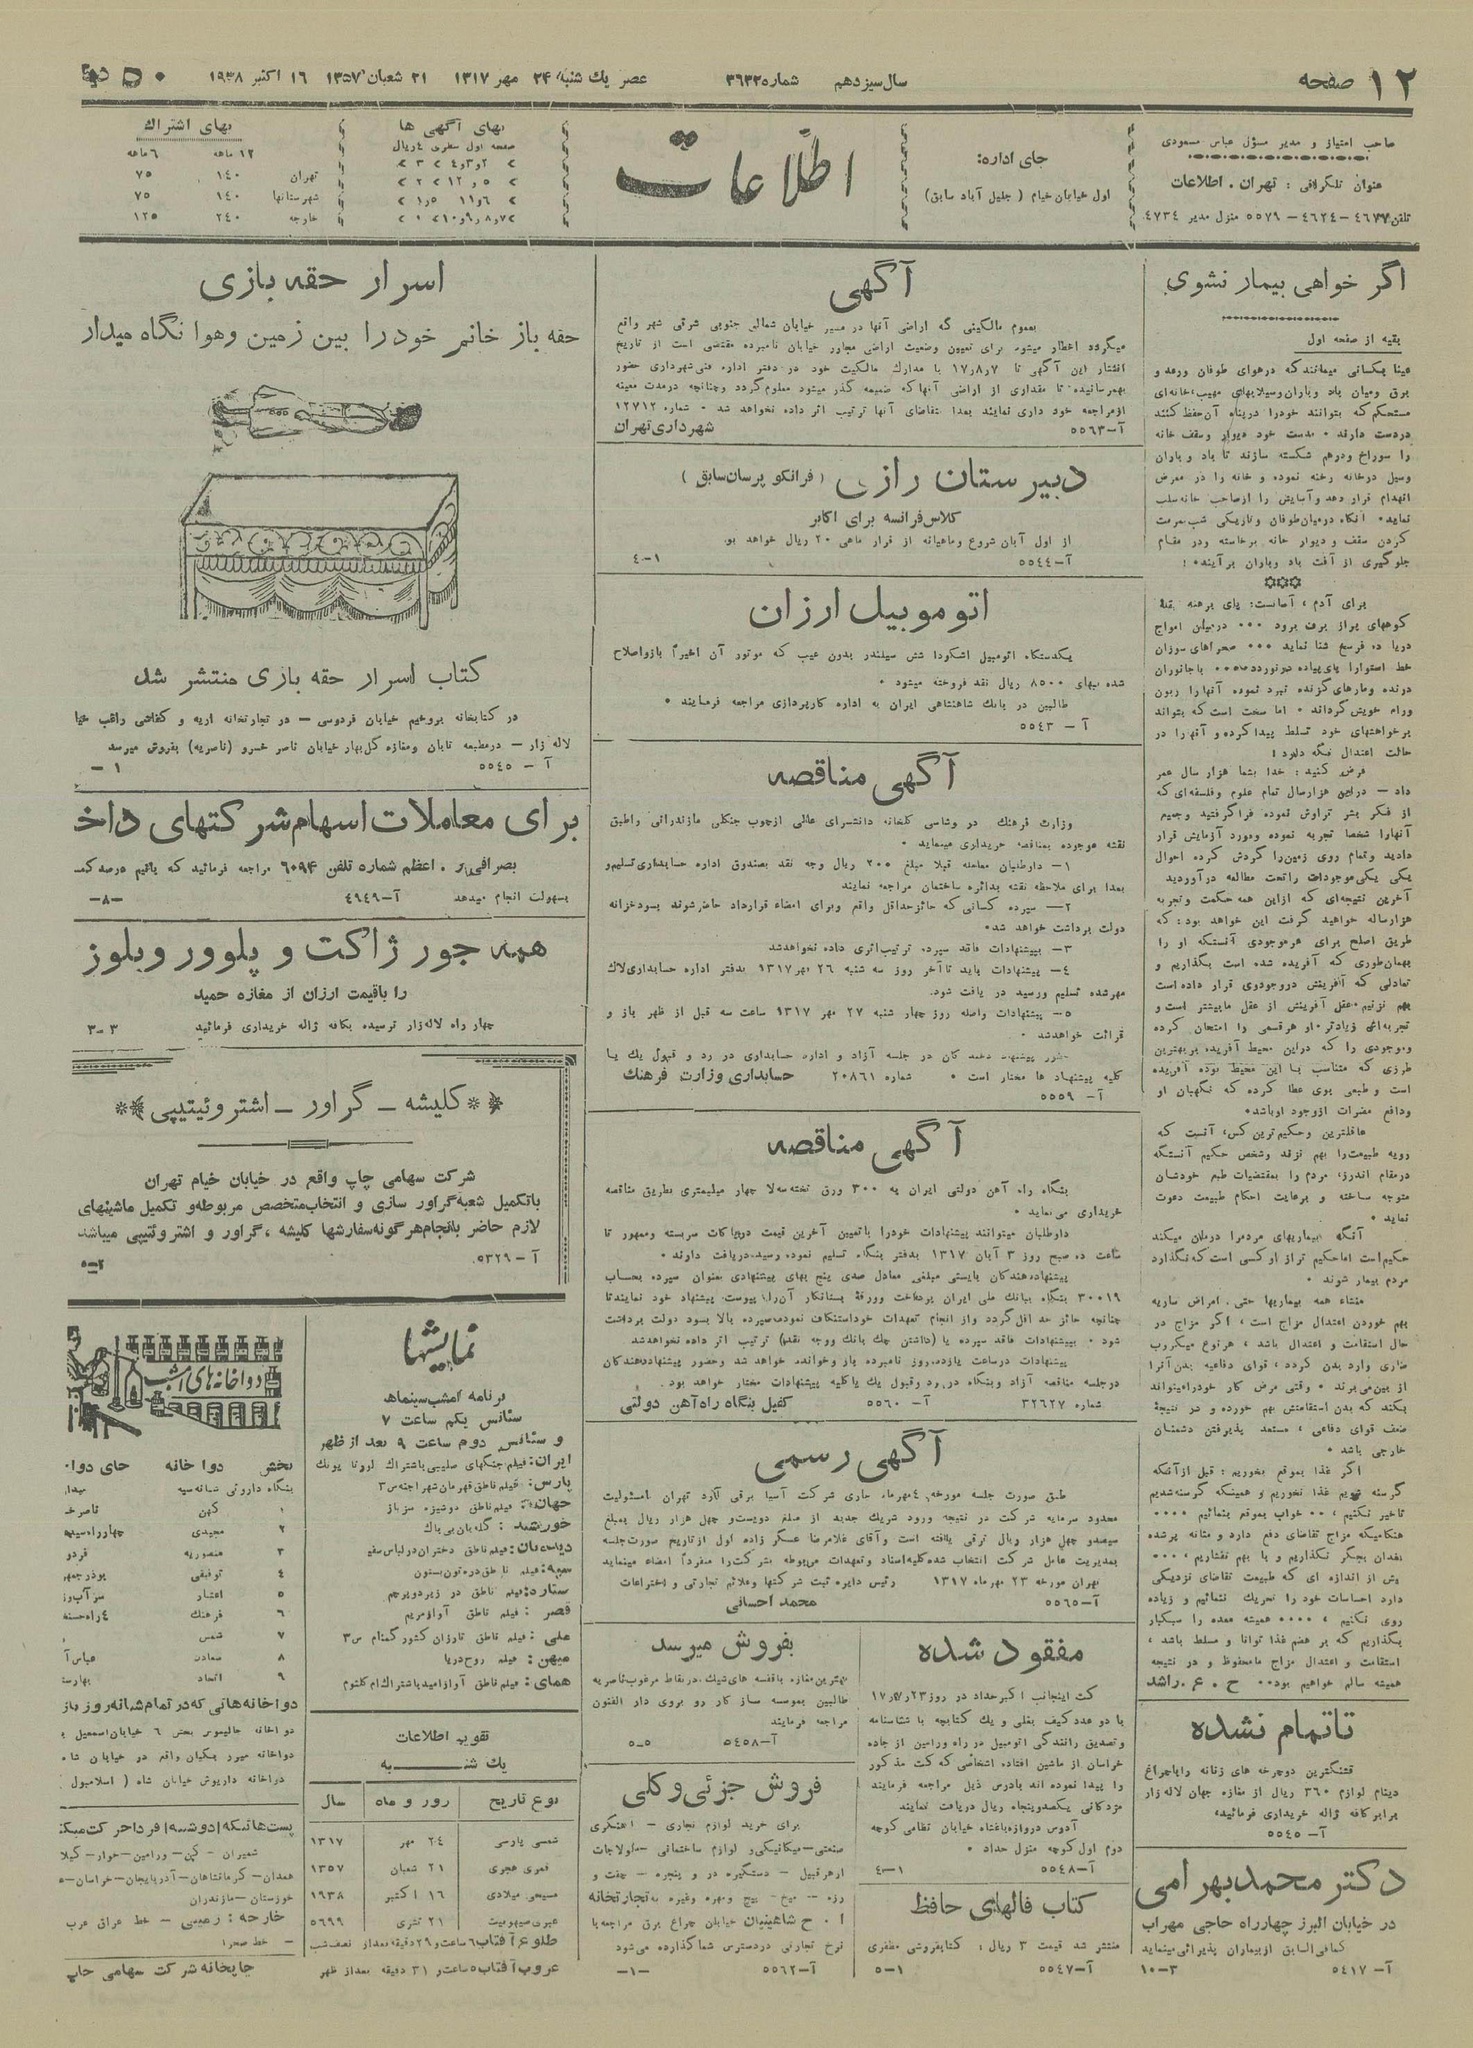 ۱۲ صفحه
سال سیزدهم شماره ۳۶۳۲ عصر یك شنبه ۲۴ مهر ۱۳۱۷ ۲۱ شعبان ۱۳۵۷ ۱۶ اکتبر ۱۹۳۸
صاحب امتیاز و مدیر مسؤل عباس مسعودی
عنوان تلگرافی : تهران . اطلاعات
۴۶۲۴ - ۵۵۷۹ منزل مدیر ۴۷۳۴
جای اداره:
اول خیابان خیام ( جلیل آباد سابق )
اطلاعات
بهای آگهی ها
صفحه اول سطری ۴ ریال
بهای اشتراك
۱۲ ماهه ۶ ماهه
تهران ۱۴۰ ۷۵
شهرستانها ۱۴۰ ۷۵
خارجه ۲۴۰ ۱۲۵
اگر خواهی بیمار نشوی
بقیه از صفحه اول
عینا بکسانی میمانند که در هوای طوفان و رعد و
برق و میان باد و باران و سیلابهای مهیب، خانه‌ای
مستحکم که بتوانند خود را در پناه آن حفظ کنند
در دست دارند . بدست خود دیوار و سقف خانه
را سوراخ و درهم شکسته سازند تا باد و باران
و سیل در خانه رخنه نموده و خانه را در معرض
انهدام قرار دهد و آسایش را از صاحب خانه سلب
نماید. آنگاه در میان طوفان و تاریکی شب
کردن سقف و دیوار خانه برخاسته و در مقام
جلوگیری از آفت باد و باران برآیند. !
برای آدم ، آسانست: پای برهنه بقلهٔ
کوههای پر از برف برود ... در میان امواج
دریا ده فرسخ شنا نماید ... صحراهای سوزان
خط استوا را پای پیاده درنوردد ... با جانوران
درنده و مارهای گزنده نبرد نموده آنها را زبون
و رام خویش گرداند . اما سخت است که بتواند
بر خواهشهای خود تسلط پیدا کرده و آنها را در
حالت اعتدال نگه دارد !
فرض کنید : خدا بشما هزار سال عمر
داد - در این هزار سال تمام علوم و فلسفه‌ای که
از فکر بشر تراوش نموده فرا گرفتید و جمیع
آنها را شخصا تجربه نموده و مورد آزمایش قرار
دادید و تمام روی زمین را گردش کرده احوال
یکی یکی موجودات را تحت مطالعه در آوردید
آخرین نتیجه‌ای که از این همه حکمت و تجربه
هزار ساله خواهید گرفت این خواهد بود : که
طریق اصلح برای هر موجودی آنستکه او را
بهمان طوری که آفریده شده است بگذاریم و
تعادلی که آفرینش در وجودی قرار داده است
بهم نزنیم. عقل آفرینش از عقل ما بیشتر است و
تجربه‌اش زیادتر. او هر قسمی را امتحان کرده
و موجودی را که در این محیط آفریده بر بهترین
طرزی که متناسب با این محیط بوده آفریده
است و طبعی بوی عطا کرده که نگهبان او
و دافع مضرات از وجود او باشد.
عاقلترین و حکیم‌ترین کس، آنست که
رویه طبیعت را بهم نزند و شخص حکیم آنستکه
در مقام اندرز، مردم را بمقتضیات طبع خودشان
متوجه ساخته و برعایت احکام طبیعت دعوت
نماید .
آنکه بیماریهای مردم را درمان میکند
حکیم است اما حکیم تر از او کسی است که نگذارد
مردم بیمار شوند .
منشاء همه بیماریها حتی امراض ساریه
بهم خوردن اعتدال مزاج است ، اگر مزاج در
حال استقامت و اعتدال باشد ، هر نوع میکروب
وارد بدن گردد ، قوای دفاعیه بدن آنرا
از بین می‌برند . وقتی مرض کار خود را میتواند
بکند که بدن استقامتش بهم خورده و در نتیجهٔ
ضعف قوای دفاعی ، مستعد پذیرفتن دشمنان
خارجی باشد .
اگر غذا بموقع بخوریم : قبل از آنکه
گرسنه شویم غذا نخوریم و همینکه گرسنه شدیم
تاخیر نکنیم ، .. خواب بموقع بنمائیم ....
هنگامیکه مزاج تقاضای دفع دارد و مثانه پر شده
بیش از اندازه ای که طبیعت تقاضای نزدیکی
دارد احساسات خود را تحریك ننمائیم و زیاده
روی نکنیم ، .... همیشه معده را سبکبار
بگذاریم که بر هضم غذا توانا و مسلط باشد ،
استقامت و اعتدال مزاج ما محفوظ و در نتیجه
همیشه سالم خواهیم بود.. ح . ع . راشد
تا تمام نشده
قشنگترین دوچرخه های زنانه را با چراغ
دینام لوازم ۳۶۰ ریال از مغازه جهان لاله زار
برابر کافه ژاله خریداری فرمائید،
آ - ۵۵۴۵
دکتر محمد بهرامی
در خیابان البرز چهارراه حاجی مهراب
کمافی السابق از بیماران پذیرائی مینماید
آ- ۵۴۱۷ ۳-۱۰
آگهی
بعموم مالکینی که اراضی آنها در مسیر خیابان شمالی جنوبی شرقی شهر واقع
میگردد اخطار میشود برای تعیین وضعیت اراضی مجاور خیابان نامبرده مقتضی است از تاریخ
انتشار این آگهی تا ۱۷/۸/۷ با مدارك مالکیت خود در دفتر اداره فنی شهرداری حضور
بهمرسانیده تا مقداری از اراضی آنها که ضمیمه گذر میشود معلوم گردد و چنانچه در مدت معینه
از مراجعه خود داری نمایند بعدا بتقاضای آنها ترتیب اثر داده نخواهد شد . شماره ۱۲۷۱۲
آ-۵۵۶۳ شهرداری تهران
دبیرستان رازی ( فرانکو پرسان سابق )
کلاس فرانسه برای اکابر
از اول آبان شروع و ماهیانه از قرار ماهی ۲۰ ریال خواهد بو.
آ-۵۵۴۴ ۱-۴
اتوموبیل ارزان
یکدستگاه اتومبیل اشکودا شش سیلندر بدون عیب که موتور آن اخیراً باز و اصلاح
شده ببهای ۸۵۰۰ ریال نقد فروخته میشود .
طالبین در بانك شاهنشاهی ایران به اداره کارپردازی مراجعه فرمایند .
آ - ۵۵۴۳
آگهی مناقصه
وزارت فرهنك در و شاسی گلخانه دانشسرای عالی از چوب جنگلی مازندرانی را طبق
نقشه موجوده بمناقصه خریداری مینماید .
۱- داوطلبان معامله قبلا مبلغ ۲۰۰ ریال وجه نقد بصندوق اداره حسابداری تسلیم و
بعدا برای ملاحظه نقشه بدائره ساختمان مراجعه نمایند
۲- سپرده کسانی که حائز حداقل واقع و برای امضاء قرارداد حاضر نشوند بسود خزانه
دولت برداشت خواهد شد.
۳- بپیشنهادات فاقد سپرده ترتیب اثری داده نخواهد شد
۴- پیشنهادات باید تا آخر روز سه شنبه ۲۶ مهر ۱۳۱۷ بدفتر اداره حسابداری لاك
مهر شده تسلیم و رسید دریافت شود.
۵- پیشنهادات واصله روز چهار شنبه ۲۷ مهر ۱۳۱۷ ساعت سه قبل از ظهر باز و
قرائت خواهد شد.
حضور پیشنهاد دهندگان در جلسه آزاد و اداره حسابداری در رد و قبول یك یا
کلیه پیشنهاد ها مختار است . شماره ۲۰۸۶۱ حسابداری وزارت فرهنك
آ - ۵۵۵۹
آگهی مناقصه
بنگاه راه آهن دولتی ایران به ۳۰۰ ورق تخته سه لا چهار میلیمتری بطریق مناقصه
خریداری می نماید .
داوطلبان میتوانند پیشنهادات خود را با تعیین آخرین قیمت در پاکات سربسته و ممهور تا
ساعت ده صبح روز ۳ آبان ۱۳۱۷ بدفتر بنگاه تسلیم نموده رسید دریافت دارند .
پیشنهاد دهندگان بایستی مبلغی معادل صدی پنج بهای پیشنهادی بعنوان سپرده بحساب
۳۰۰۱۹ بنگاه ببانك ملی ایران پرداخت و ورقهٔ بستانکار آن را پیوست پیشنهاد خود نمایند تا
چنانچه حائز حد اقل گردد و از انجام تعهدات خود استنکاف نمود سپرده بالا بسود دولت برداشت
شود . بپیشنهادات فاقد سپرده یا (داشتن چك بانك و وجه نقد) ترتیب اثر داده نخواهد شد
پیشنهادات در ساعت یازده روز نامبرده باز و خوانده خواهد شد و حضور پیشنهاد دهندگان
در جلسه مناقصه آزاد و بنگاه در رد و قبول یك یا کلیه پیشنهادات مختار خواهد بود.
شماره ۳۲۶۲۷ آ- ۵۵۶۰ کفیل بنگاه راه آهن دولتی
آگهی رسمی
طبق صورت جلسه مورخه ۴ مهرماه جاری شرکت آسیا برقی تهران بمسئولیت
محدود سرمایه شرکت در نتیجه ورود شریك جدید از مبلغ دویست و چهل هزار ریال بمبلغ
سیصد و چهل هزار ریال ترقی یافته است و آقای غلامرضا عسگر زاده اول از تاریخ صورت جلسه
بمدیریت عامل شرکت انتخاب شده کلیه اسناد و تعهدات مربوطه بشرکت را منفرداً امضاء مینماید
تهران مورخه ۲۳ مهرماه ۱۳۱۷ رئیس دایره ثبت شرکتها و علائم تجارتی و اختراعات
آ-۵۵۶۵ محمد احسانی
مفقود شده
کت اینجانب اکبر حداد در روز
با دو عدد کیف بغلی و یك کتابچه با شناسنامه
و تصدیق رانندگی اتومبیل در راه ورامین از جاده
خراسان از ماشین افتاده اشخاصی که کت مذکور
را پیدا نموده اند بادرس ذیل مراجعه فرمایند
مژدگانی یکصد و پنجاه ریال دریافت نمایند
آدوس دروازه باغشاه خیابان نظامی کوچه
دوم اول کوچه منزل حداد .
آ-۵۵۴۸ ۱-۴
کتاب فالهای حافظ
منتشر شد قیمت ۳ ریال : کتابفروشی مظفری
آ-۵۵۴۷ ۱-۵
بفروش میرسد
بهترین مغازه با قفسه های شیك. در نقاط مرغوب ناصریه
طالبین بموسسه ساز کار رو بروی دار الفنون
مراجعه فرمایند
آ-۵۴۵۸ ۵-۵
فروش جزئی و کلی
برای خرید لوازم نجاری - آهنگری
صنعتی - میکانیکی و لوازم ساختمانی - ماولاجات
از هر قبیل - دستگیره در و پنجره - چفت و
رزه - میخ - پیچ و مهره و غیره به تجارتخانه
ا . ح شاهینیان خیابان چراغ برق مراجعه با
نرخ تجارتی در دسترس شما گذارده می‌شود
آ-۵۵۶۲ -۱-
اسرار حقه بازی
حقه باز خانم خود را بین زمین و هوا نگاه میدار
کتاب اسرار حقه بازی منتشر شد
در کتابخانه بروخیم خیابان فردوسی - در تجارتخانه اریه و کفاشی راغب خیا
لاله زار - در مطبعه تابان و مغازه گل بهار خیابان ناصر خسرو (ناصریه) بفروش میرسد
آ - ۵۵۴۵ ۱-
برای معاملات اسهام شرکتهای داخ
بصرافی ر . اعظم شماره تلفن ۶۰۹۴ مراجعه فرمائید که باقیم درصد کم
بسهولت انجام میدهد آ-۴۹۴۹ -۸-
همه جور ژاکت و پلوور و بلوز
را باقیمت ارزان از مغازه حمید
چهار راه لاله زار نرسیده بکافه ژاله خریداری فرمائید ۳-۳
کلیشه - گراور - اشتروئیتیپی
شرکت سهامی چاپ واقع در خیابان خیام تهران
با تکمیل شعبه گراور سازی و انتخاب متخصص مربوطه و تکمیل ماشینهای
لازم حاضر بانجام هر گونه سفارشها کلیشه ، گراور و اشتروئتیپی میباشد
آ - ۵۳۲۹
نمایشها
برنامه امشب سینماها
سئانس یکم ساعت ۷
و سئانس دوم ساعت ۹ بعد از ظهر
ایران: فیلم جنگهای صلیبی باشتراك لورتا یونك
پارس: فیلم ناطق قهرمان شهر اجنه س۳
جهان: فیلم ناطق دوشیزه سرباز
خورشید : گله بان بی باك
دیده‌بان: فیلم ناطق دختران در لباس سفید
سپه: فیلم ناطق دره تون بستون
ستاره: فیلم ناطق در زیر دو پرچم
قصر : فیلم ناطق آواز مریم
ملی : فیلم ناطق تارزان کشور گمنام س۳
میهن : فیلم روح دریا
همای: فیلم ناطق آواز امید باشتراك ام کلثوم
تقویم اطلاعات
یك شنبه
نوع تاریخ روز و ماه سال
شمسی پارسی ۲۴ مهر ۱۳۱۷
قمری هجری ۲۱ شعبان ۱۳۵۷
مسیحی میلادی ۱۶ اکتبر ۱۹۳۸
عبری صیهونیت ۲۱ تشری ۵۶۹۹
طلوع آفتاب ۶ ساعت و ۲۹ دقیقه بعد از نصف شب
غروب آفتاب ۵ ساعت و ۳۱ دقیقه بعد از ظهر
دواخانه‌های امشب
بخش دواخانه جای دوا
بنگاه داروئی شبانه سپه میدا
۱ کهن ناصر خـ
۲ مجیدی چهارراه سیـ
۳ منصوریه فردو
۴ توفیقی بوذرجمهر
۵ اعتبار سر آب
۶ فرهنك
۷ شمس
۸ سعادت عباس آ
۹ اتحاد بهارست
دواخانه‌هائی که در تمام شبانه روز باز
دواخانه جالینوس بخش ۶ خیابان اسمعیل
دواخانه میرزیکیان واقع در خیابان شا
دواخانه داریوش خیابان شاه ( اسلامبول
پست‌هائیکه (دوشنبه) فردا حرکت میکنـ
شمیران - کن - ورامین - خوار - گیلا
همدان - کرمانشاهان - آذربایجان - خراسان -
خوزستان - مازندران
خارجه : زمینی - خط عراق عرب
- خط صحرا
چاپخانه شرکت سهامی چاپ